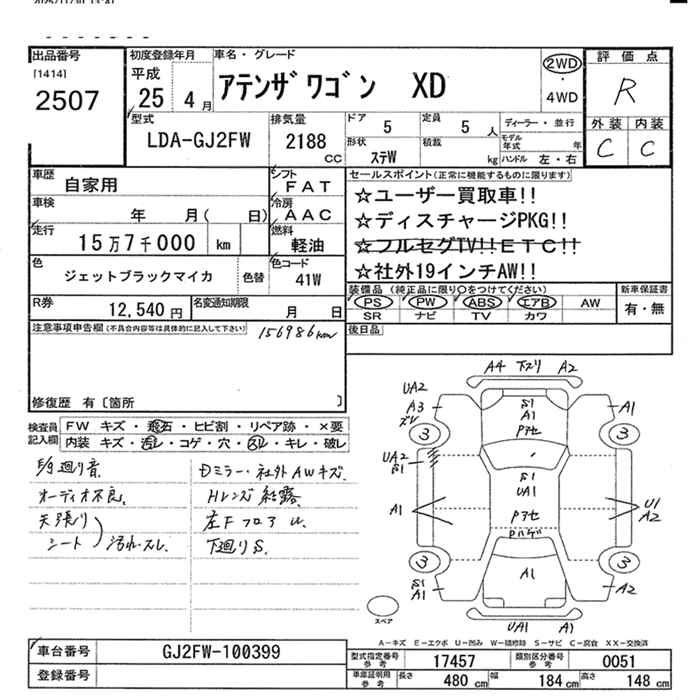 出品番号
[1414]
2507
初度登録年月
平成
25年 4月
車名・グレード
アテンザワゴン XD
2WD
4WD
評価点
R
外装 内装
C C
型式
LDA-GJ2FW
排気量
2188
CC
ドア 5
定員 5 人
形状 ステW
積載 kg
ディーラー・並行
モデル年式 年
ハンドル 左・右
車歴 自家用
シフト FAT
車検 年 月( 日)
冷房 AAC
走行 15万7千000 km
燃料 軽油
色 ジェットブラックマイカ 色替
色コード 41W
R券 12,540円
名変通知期限 月 日
セールスポイント(正常に機能するものに限ります)
☆ユーザー買取車!!
☆ディスチャージPKG!!
☆フルセグTV!!ETC!!
☆社外19インチAW!!
装備品(純正品に限り○をつけてください)
新車保証書
PS PW ABS エアB AW
有・無
SR ナビ TV カワ
後日品
注意事項申告欄(不具合内容等は具体的に記入して下さい)
156986km
修復歴 有〔箇所 〕
検査員記入欄
FW キズ・飛石・ヒビ割・リペア跡・×要
内装 キズ・汚レ・コゲ・穴・スレ・キレ・破レ
廻り音
オーディオ不良
天張り
シート
汚れ・スレ
Dミラー・社外AWキズ
Hレンズ結露
左Fフロア U
下廻りS
A4 下ズリ A2
UA2
A3
ズレ
S1
A1
Pアセ
A1
3 3
UA2
S1
S1
UA1
A1
U1
A2
Pアセ
Pハゲ
3 3
A1
S1
A1
A2
UA1 A1
スペア
A－キズ E－エクボ U－凹み W－補修跡 S－サビ C－腐食 XX－交換済
車台番号 GJ2FW-100399
登録番号
型式指定番号 参考 17457
類別区分番号 参考 0051
車庫証明用 参考 長さ 480 cm 幅 184 cm 高さ 148 cm